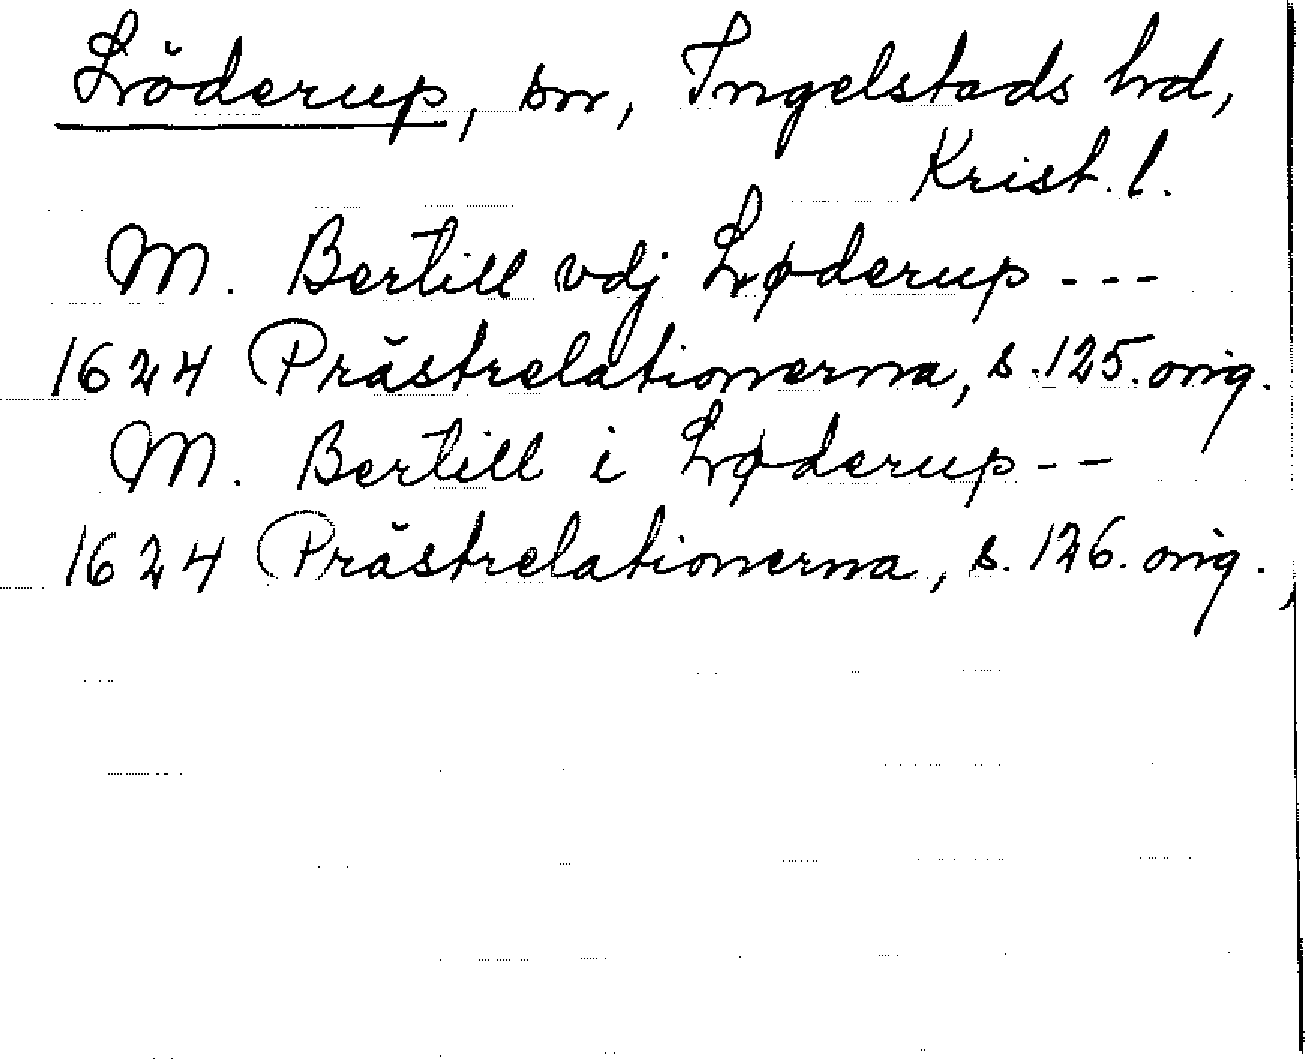 Löderup, sn, Ingelstads hrd,
Krist. l.
M. Bertill vdj Løderup ---
1624 Prästrelationerna, s. 125. orig.
M. Bertill i Løderup --
1624 Prästrelationerna, s. 126. orig.